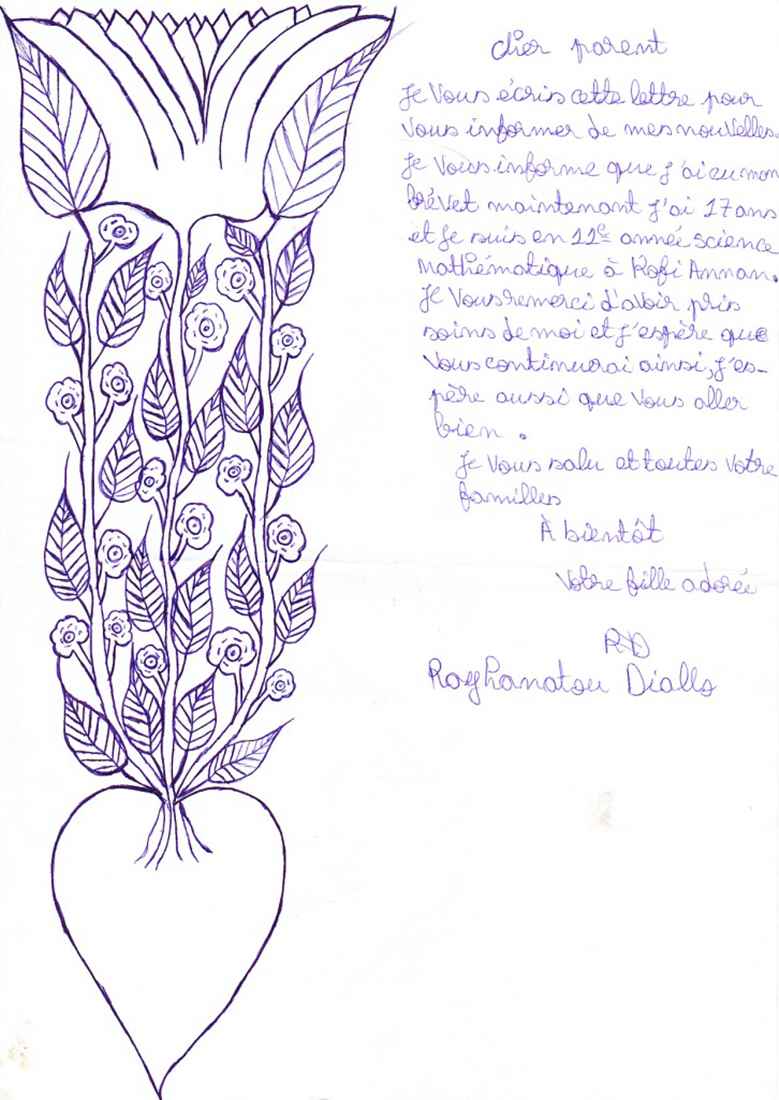 cher parent
Je Vous écris cette lettre pour
Vous informer de mes nouvelles.
Je Vous informe que j'ai eu mon
brévet maintenant j'ai 17 ans
et Je suis en 11e année science
Mathématique à Kofi Annan.
Je Vous remerci d'avoir pris
soins de moi et j'espère que
Vous continuerai ainsi, j'es-
père aussi que Vous aller
bien .
Je Vous salu et toutes Votre
familles
À bientôt
Votre fille adorée
RD
Rayhanatou Diallo